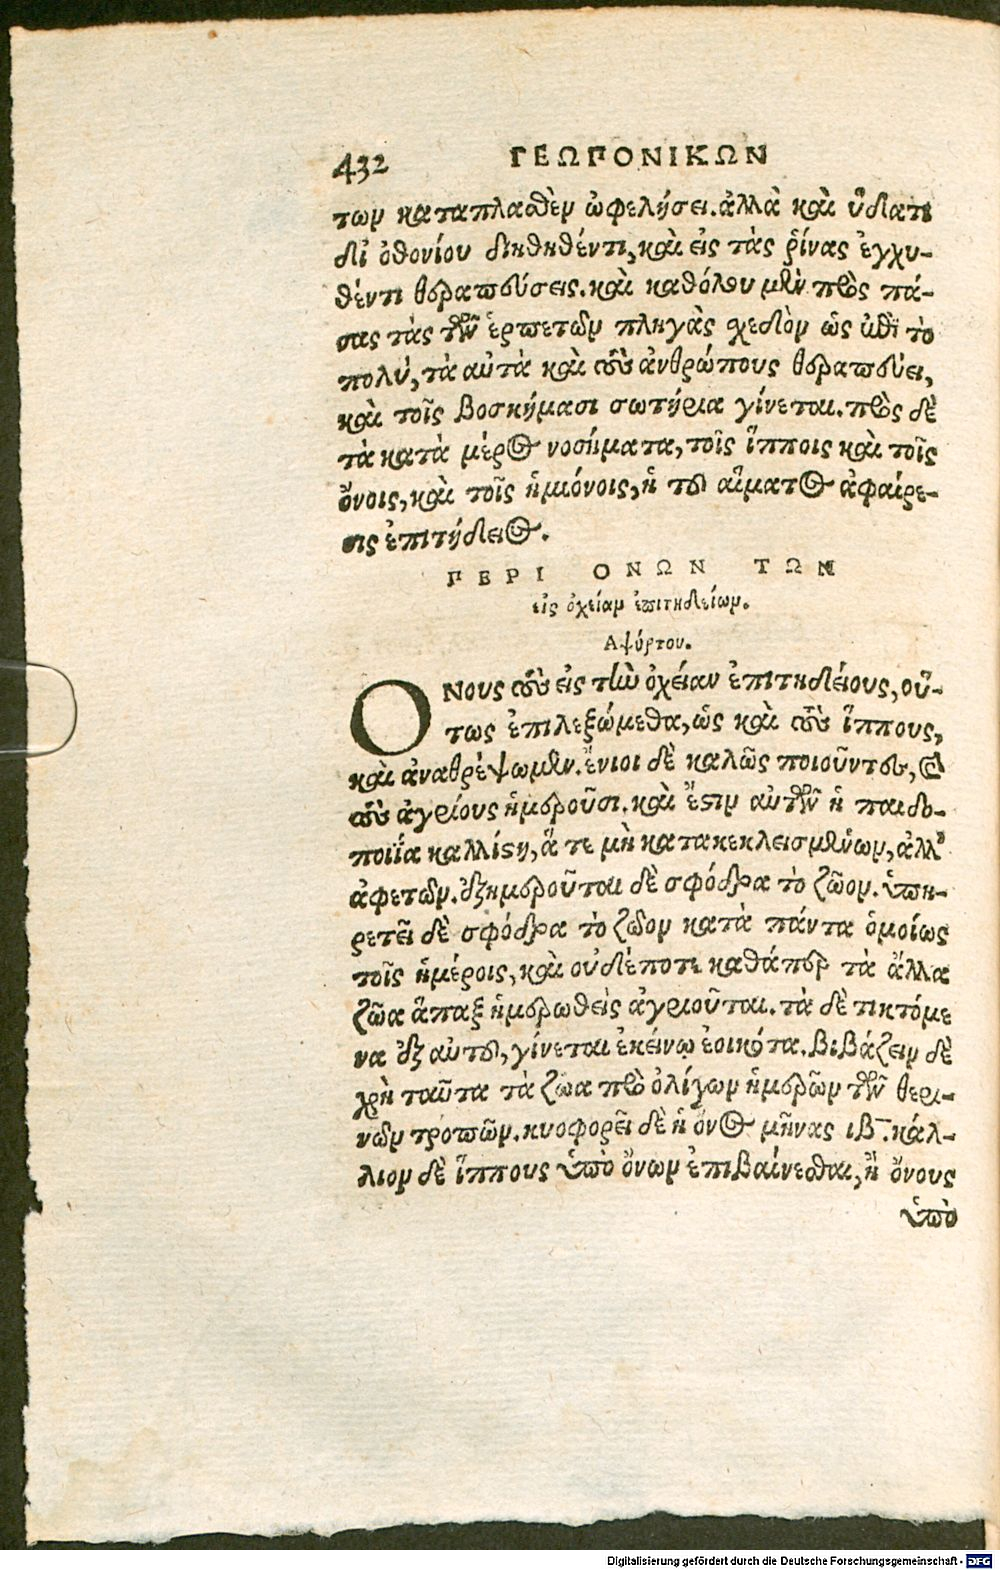 432 ΓΕΩΠΟΝΙΚΩΝ
των καταπλασθὲν ὠφελήσει. ἀλλὰ καὶ ὕδατι
δι' ὀθονίου διηθηθέντι, καὶ εἰς τὰς ῥῖνας ἐγχυ-
θέντι θεραπεύσεις. καὶ καθόλου μὲν πρὸς πά-
σας τὰς τῶν ἑρπετῶν πληγὰς σχεδὸν ὡς ἐπὶ τὸ
πολὺ, τὰ αὐτὰ καὶ τοὺς ἀνθρώπους θεραπεύει,
καὶ τοῖς βοσκήμασι σωτήρια γίνεται. πρὸς δὲ
τὰ κατὰ μέρος νοσήματα, τοῖς ἵπποις καὶ τοῖς
ὄνοις, καὶ τοῖς ἡμιόνοις, ἡ τοῦ αἵματος ἀφαίρε-
σις ἐπιτήδειος.
ΠΕΡΙ ΟΝΩΝ ΤΩΝ
εἰς ὀχείαν ἐπιτηδείων.
Αψύρτου.
ΟΝους τοὺς εἰς τὴν ὀχείαν ἐπιτηδείους, οὕ-
τως ἐπιλεξώμεθα, ὡς καὶ τοὺς ἵππους,
καὶ ἀναθρέψωμεν. ἔνιοι δὲ καλῶς ποιοῦντες, καὶ
τοὺς ἀγρίους ἡμεροῦσι. καὶ ἔστιν αὐτῶν ἡ παιδο-
ποιΐα καλλίστη, ἅ τε μὴ κατακεκλεισμένων, ἀλλ'
ἀφετῶν. ἐξημεροῦται δὲ σφόδρα τὸ ζῶον. ὑπη-
ρετεῖ δὲ σφόδρα τὸ ζῶον κατὰ πάντα ὁμοίως
τοῖς ἡμέροις, καὶ οὐδέποτε καθάπερ τὰ ἄλλα
ζῶα ἅπαξ ἡμερωθεὶς ἀγριοῦται. τὰ δὲ τικτόμε
να ἐξ αὐτοῦ, γίνεται ἐκείνῳ ἐοικότα. βιβάζειν δὲ
χρὴ ταῦτα τὰ ζῶα πρὸ ὀλίγων ἡμερῶν τῶν θερι-
νῶν τροπῶν. κυοφορεῖ δὲ ἡ ὄνος μῆνας ιβ. κάλ-
λιον δὲ ἵππους ὑπὸ ὄνων ἐπιβαίνεσθαι, ἢ ὄνους
ὑπὸ
Digitalisierung gefördert durch die Deutsche Forschungsgemeinschaft - DFG